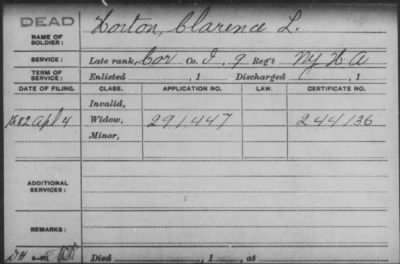 DEAD
NAME OF SOLDIER: Horton, Clarence L.
SERVICE: Late rank, Cor Co. I, 9 Reg't NY H A
TERM OF SERVICE: Enlisted , 1 Discharged , 1
DATE OF FILING. CLASS. APPLICATION NO. LAW. CERTIFICATE NO.
Invalid,
1882 Apl 4 Widow, 291.447 244136
Minor,
ADDITIONAL SERVICES:
REMARKS:
Died , 1 , at